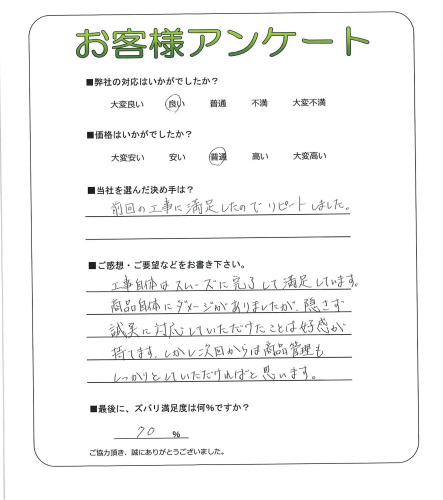 お客様アンケート
■弊社の対応はいかがでしたか？
大変良い 良い 普通 不満 大変不満
■価格はいかがでしたか？
大変安い 安い 普通 高い 大変高い
■当社を選んだ決め手は？
前回の工事に満足したので リピートしました。
■ご感想・ご要望などをお書き下さい。
工事自体はスムーズに完了して満足しています。
商品自体にダメージがありましたが、隠さず
誠実に対応していただけたことは好感が
持てます。しかし次回からは商品管理も
しっかりとしていただければと思います。
■最後に、ズバリ満足度は何%ですか？
70 %
ご協力頂き、誠にありがとうございました。